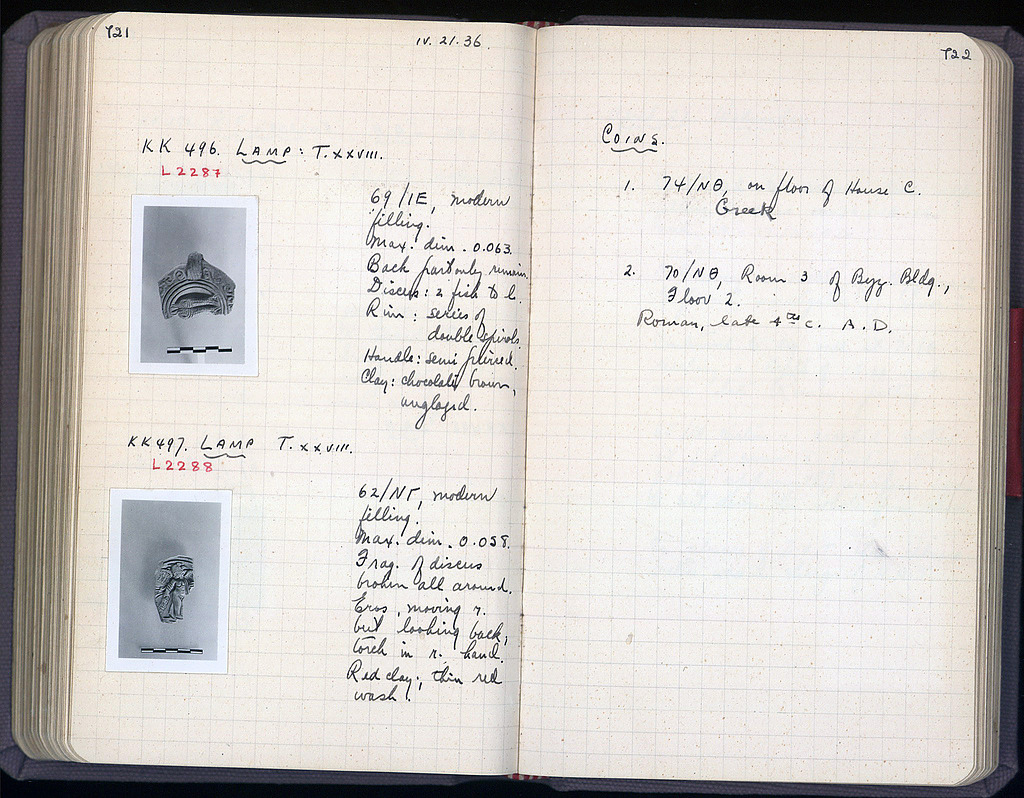 721
IV. 21. 36.
KK 496. LAMP: T. XXVIII.
L2287
69/ΙΕ, modern
filling.
Max. dim. 0.063.
Back part only remain.
Discus: 2 fish to l.
Rim: series of
double spirals.
Handle: semi pierced.
Clay: chocolate brown,
unglazed.
KK497. LAMP T. XXVIII.
L2288
62/ΝΓ, modern
filling.
Max. dim. 0.058.
Frag. of discus
broken all around.
Eros, moving r.
but looking back,
torch in r. hand.
Red clay; thin red
wash.
722
COINS.
1. 74/ΝΘ, on floor of House C.
Greek
2. 70/ΝΘ, Room 3 of Byz. Bldg.,
Floor 2.
Roman, late 4th c. A.D.